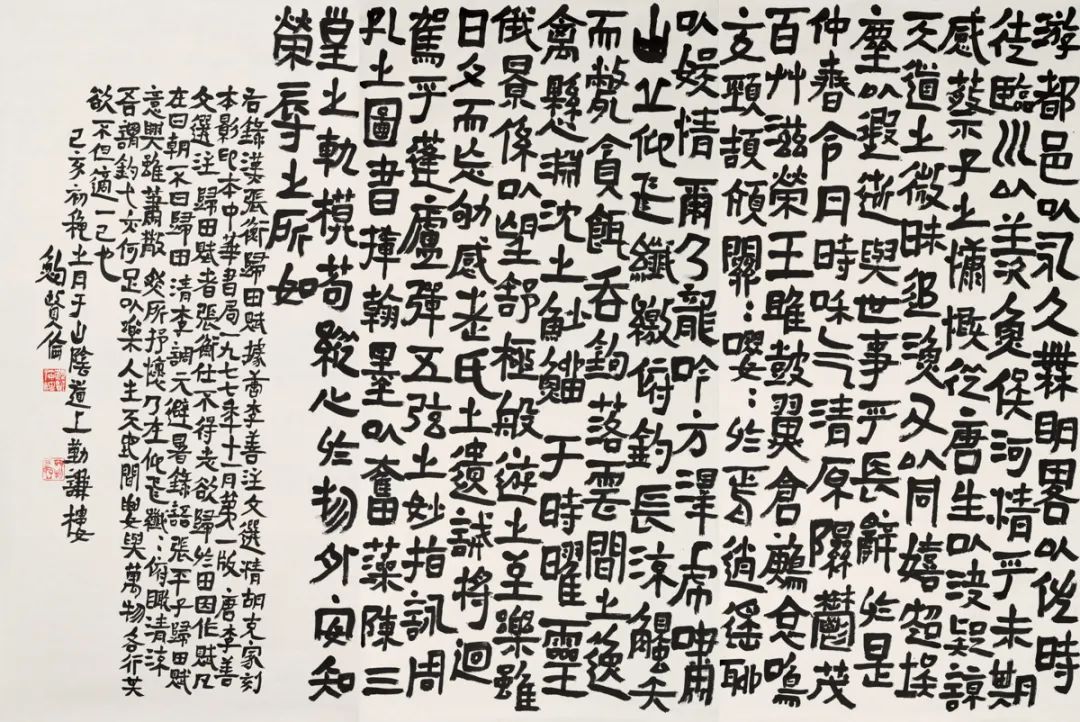 游都邑以永久無明略以佐時
徒臨川以羨魚俟河清乎未期
感蔡子之慷慨從唐生以決疑諒
天道之微昧追漁父以同嬉超埃
塵以遐逝與世事乎長辭於是
仲春令月時和气清原隰鬱茂
百艸滋榮王雎鼓翼倉鶊哀鳴
交頸頡頏關：嚶：於焉逍遙聊
以娛情爾乃龍吟方澤虎嘯
山丘仰飛纖繳俯釣長流觸矢
而斃貪餌吞鉤落雲間之逸
禽懸淵沈之魦鰡于時曜靈
俄景係以望舒極般遊之至樂雖
日夕而忘劬感老氏之遺誡將迴
駕乎蓬廬彈五弦之妙指詠周
孔之圖書揮翰墨以奮藻陳三
皇之軌模苟縱心於物外安知
榮辱之所如
右錄漢張衡歸田賦據唐李善注文選清胡克家刻
本影印本中華書局一九七七年十一月第一版唐李善
文選注歸田賦者張衡仕不得志欲歸於田因作此賦凡
在曰朝不曰歸田清李調元避暑錄語張平子歸田賦
意興雖蕭散然所抒懷乃在仰飛纖：俯瞰清流
吾謂釣弋亦何足以樂人生天地間要與萬物各行其
欲不但適一己也
己亥初秋之月于山陰道上勤謙樓
鮑賢倫